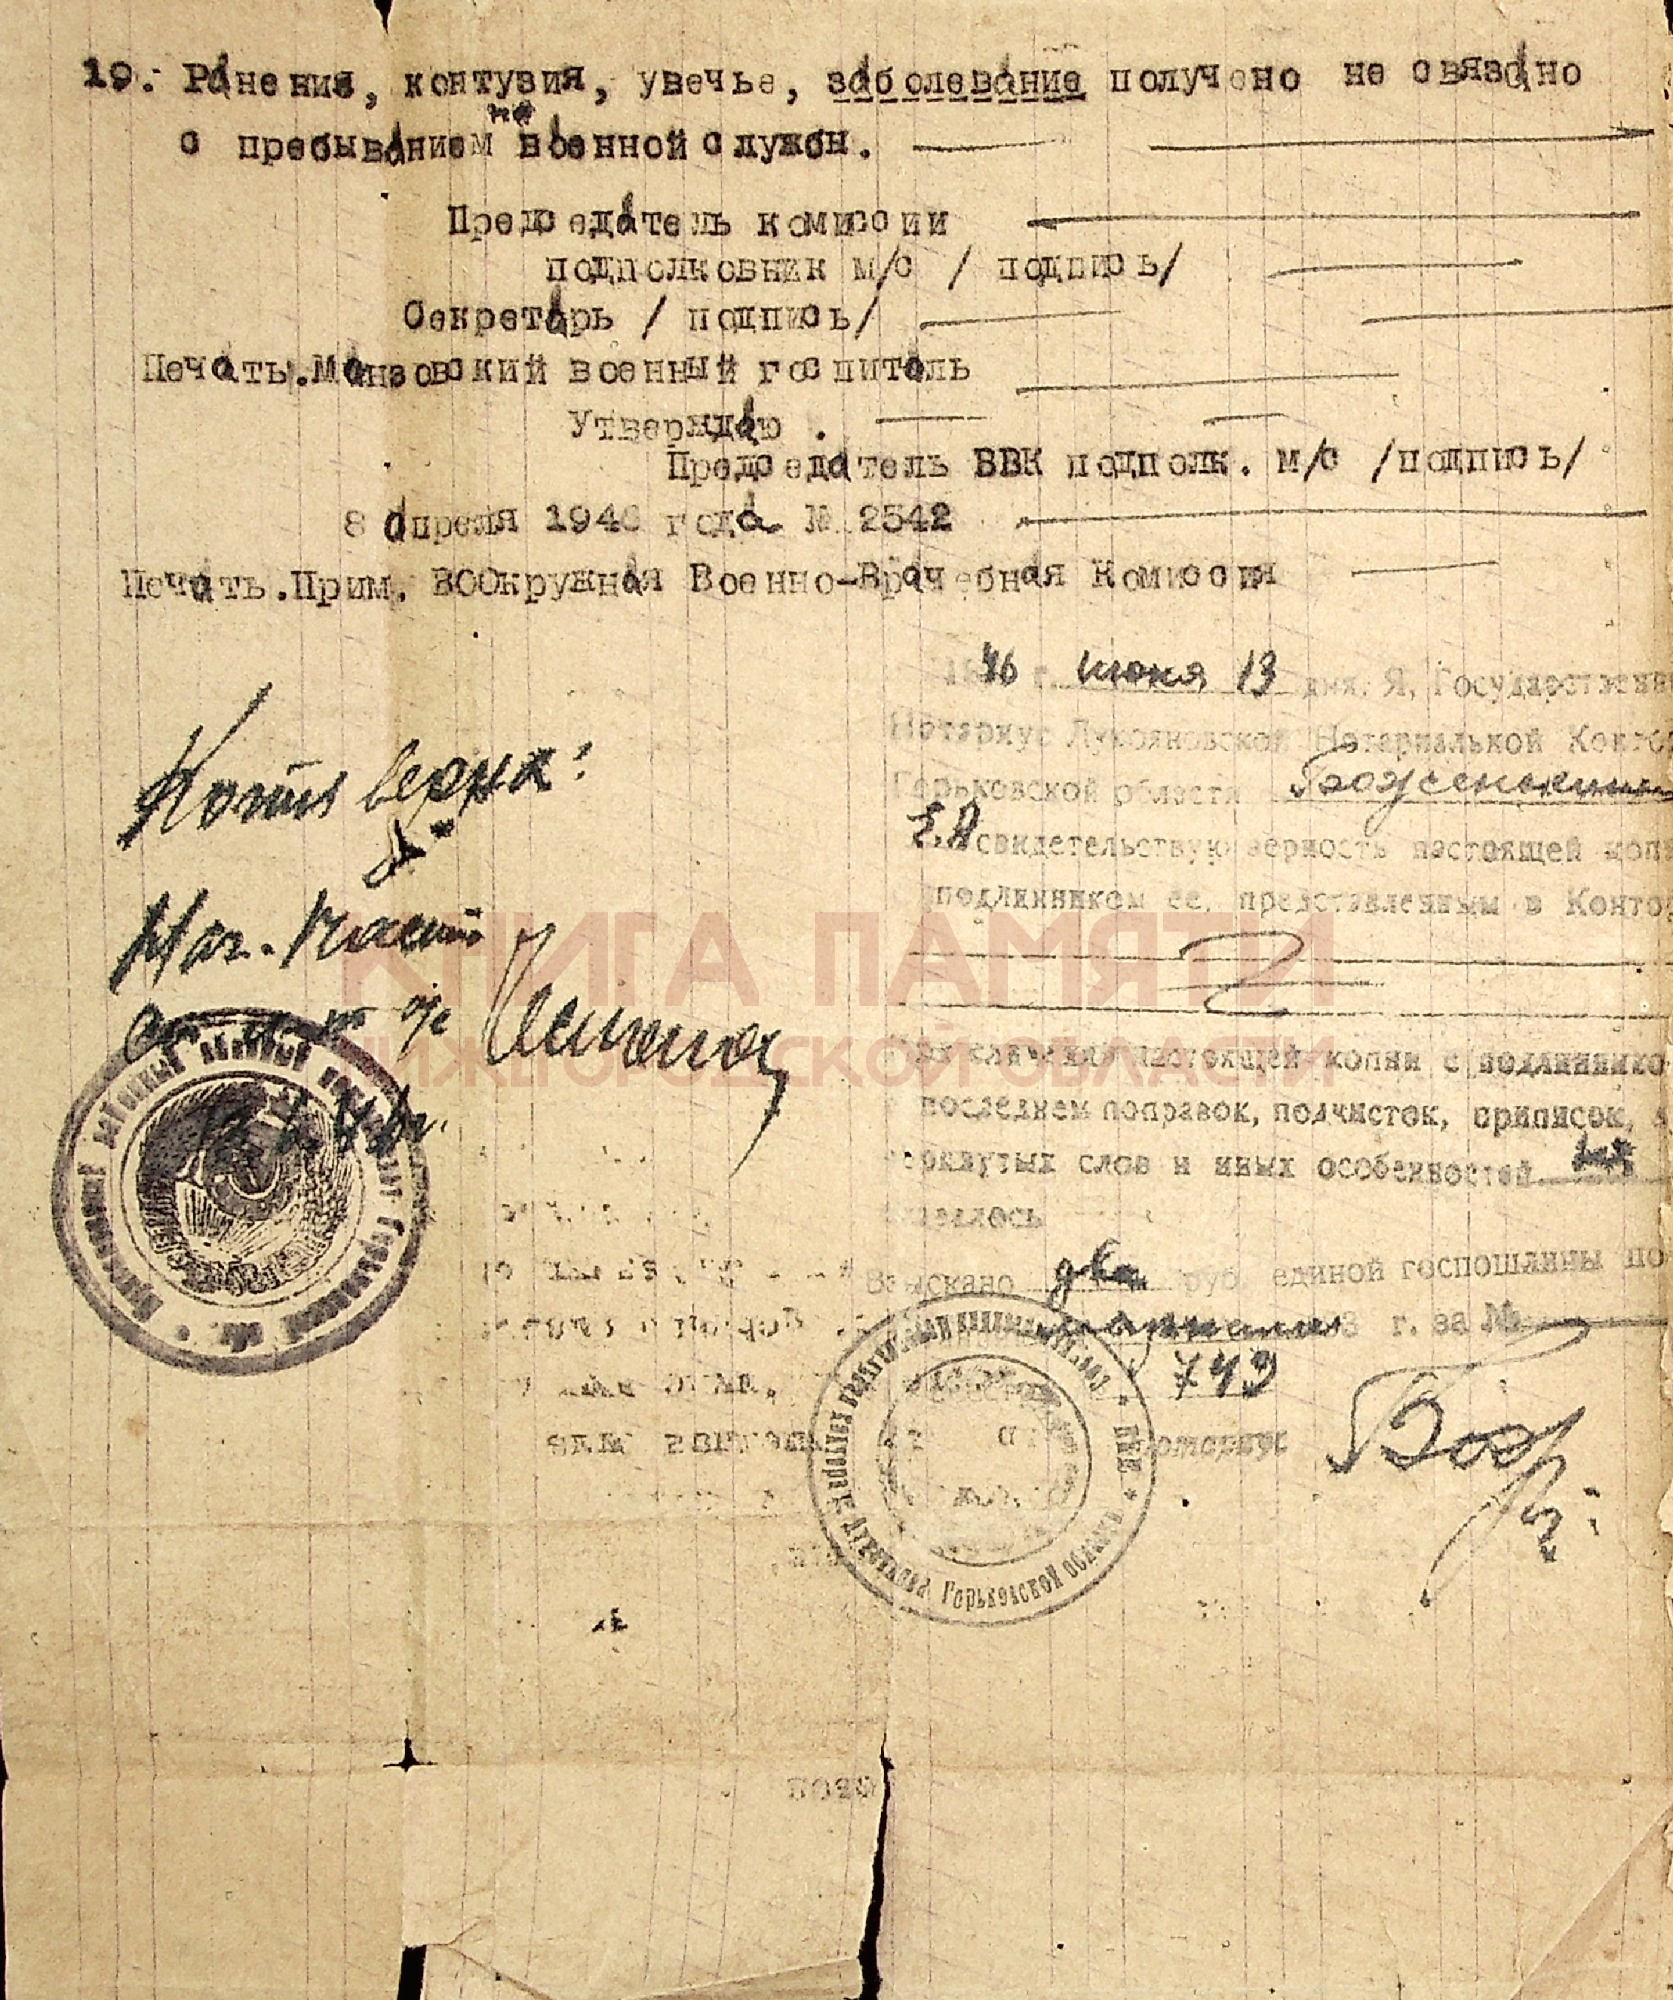 19. Ранения, контузия, увечье, заболевание получено не связано
с пребыванием на военной службы.
Председатель комиссии
подполковник м/с / подпись/
Секретарь / подпись/
Печать.Манзовский военный госпиталь
Утверждаю .
Председатель ВВК подполк. м/с /подпись/
8 апреля 1946 года № 2542
Печать.Прим. ВООкружная Военно-Врачебная Комиссия
1946 г. июня 13 дня. Я, Государственн
Нотариус Лукояновской Нотариальной Конто
Горьковской области Боженькина
Е.А свидетельствую верность настоящей копи
подлинником ее, представленным в Конто
При сличении настоящей копии с подлинико
последнем поправок, подчисток, приписок,
черкнутых слов и иных особенностей не
оказалось
Взыскано два руб. единой госпошлины по
г. за №
749
Нотариус
Копия верна:
Нач. части
КНИГА ПАМЯТИ
НИЖЕГОРОДСКОЙ ОБЛАСТИ
Горьковской области